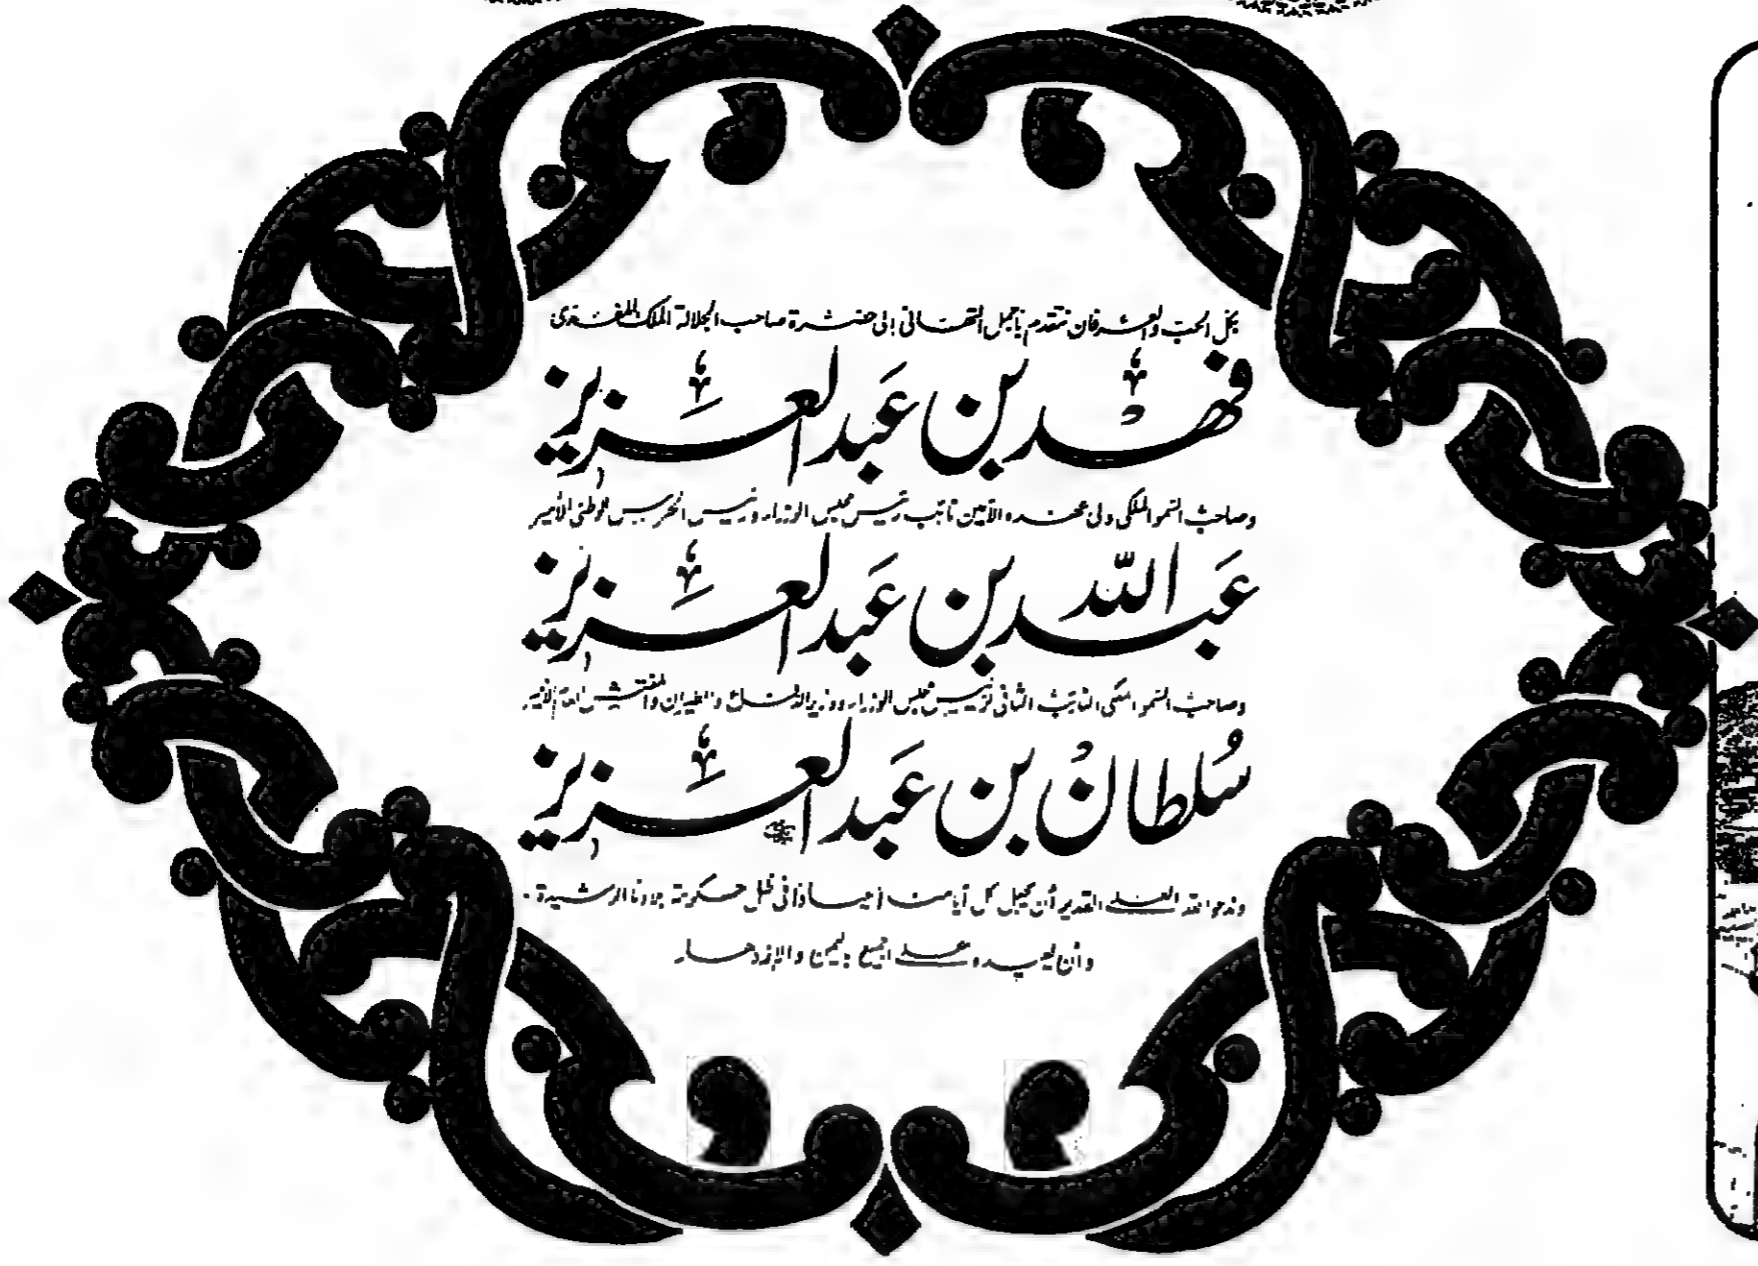 بكل الحب والعرفان نتقدم بأجمل التهاني إلى حضرة صاحب الجلالة الملك المفدى
فهد بن عبد العزيز
وصاحب السمو الملكي ولي عهده الأمين نائب رئيس مجلس الوزراء ورئيس الحرس الوطني الأمير
عبد الله بن عبد العزيز
وصاحب السمو الملكي النائب الثاني لرئيس مجلس الوزراء ووزير الدفاع والطيران والمفتش العام الأمير
سلطان بن عبد العزيز
وندعو الله العلي القدير أن يجعل كل أيامنا أعياداً في ظل حكومة بلادنا الرشيدة.
وأن يعيده على الجميع باليمن والازدهار